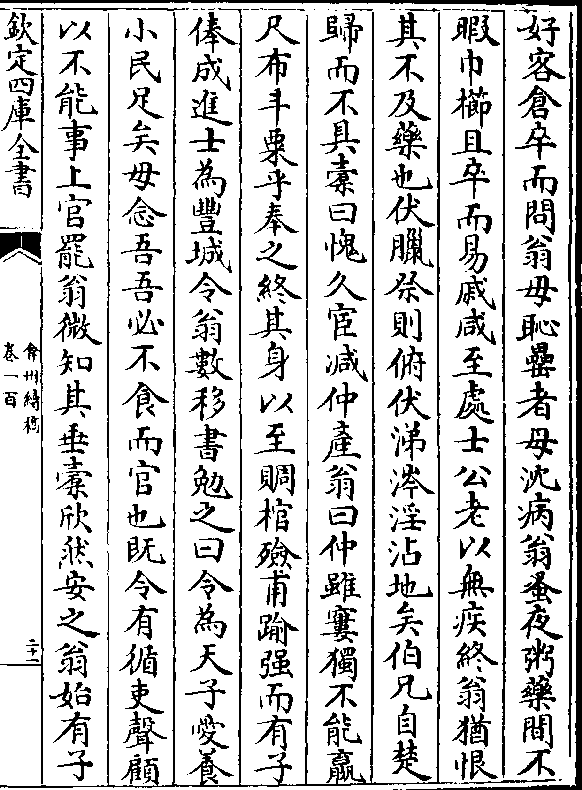 好客倉卒而問翁毋恥罍者母沈病翁蚤夜粥藥間不
暇巾櫛且卒而易戚咸至處士公老以無疾終翁猶恨
其不及藥也伏臘祭則俯伏涕涔淫沾地矣伯兄自楚
歸而不具橐曰愧久宦減仲產翁曰仲雖窶獨不能贏
尺布斗粟乎奉之終其身以至賙棺殮甫踰强而有子
俸成進士為豐城令翁數移書勉之曰令為天子愛養
小民足矣毋念吾吾必不食而官也既令有循吏聲顧
以不能事上官罷翁微知其垂橐欣然安之翁始有子
欽定四庫全書
弇州續稿
卷一百
二十二